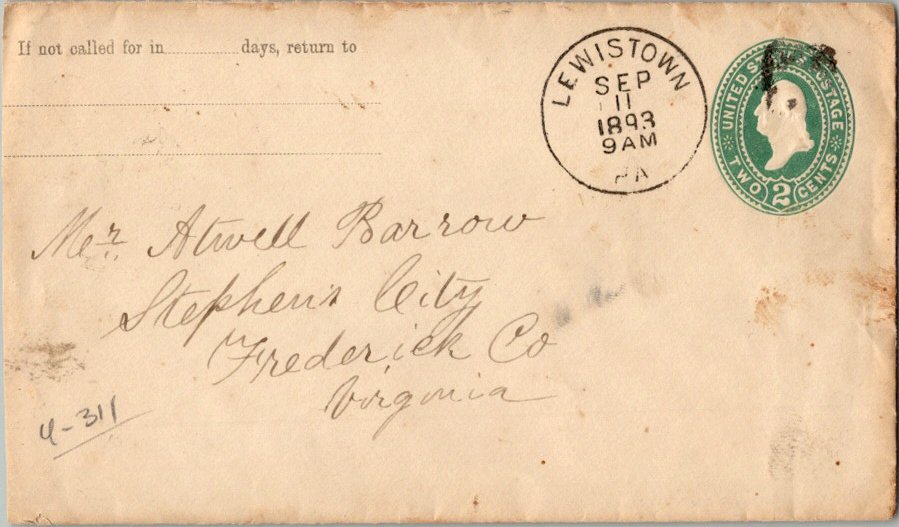 If not called for in ............ days, return to
LEWISTOWN
SEP
11
1893
9AM
PA
UNITED STATES POSTAGE
TWO 2 CENTS
Mr. Atwell Barrow
Stephens City
Frederick Co
Virginia
4-311